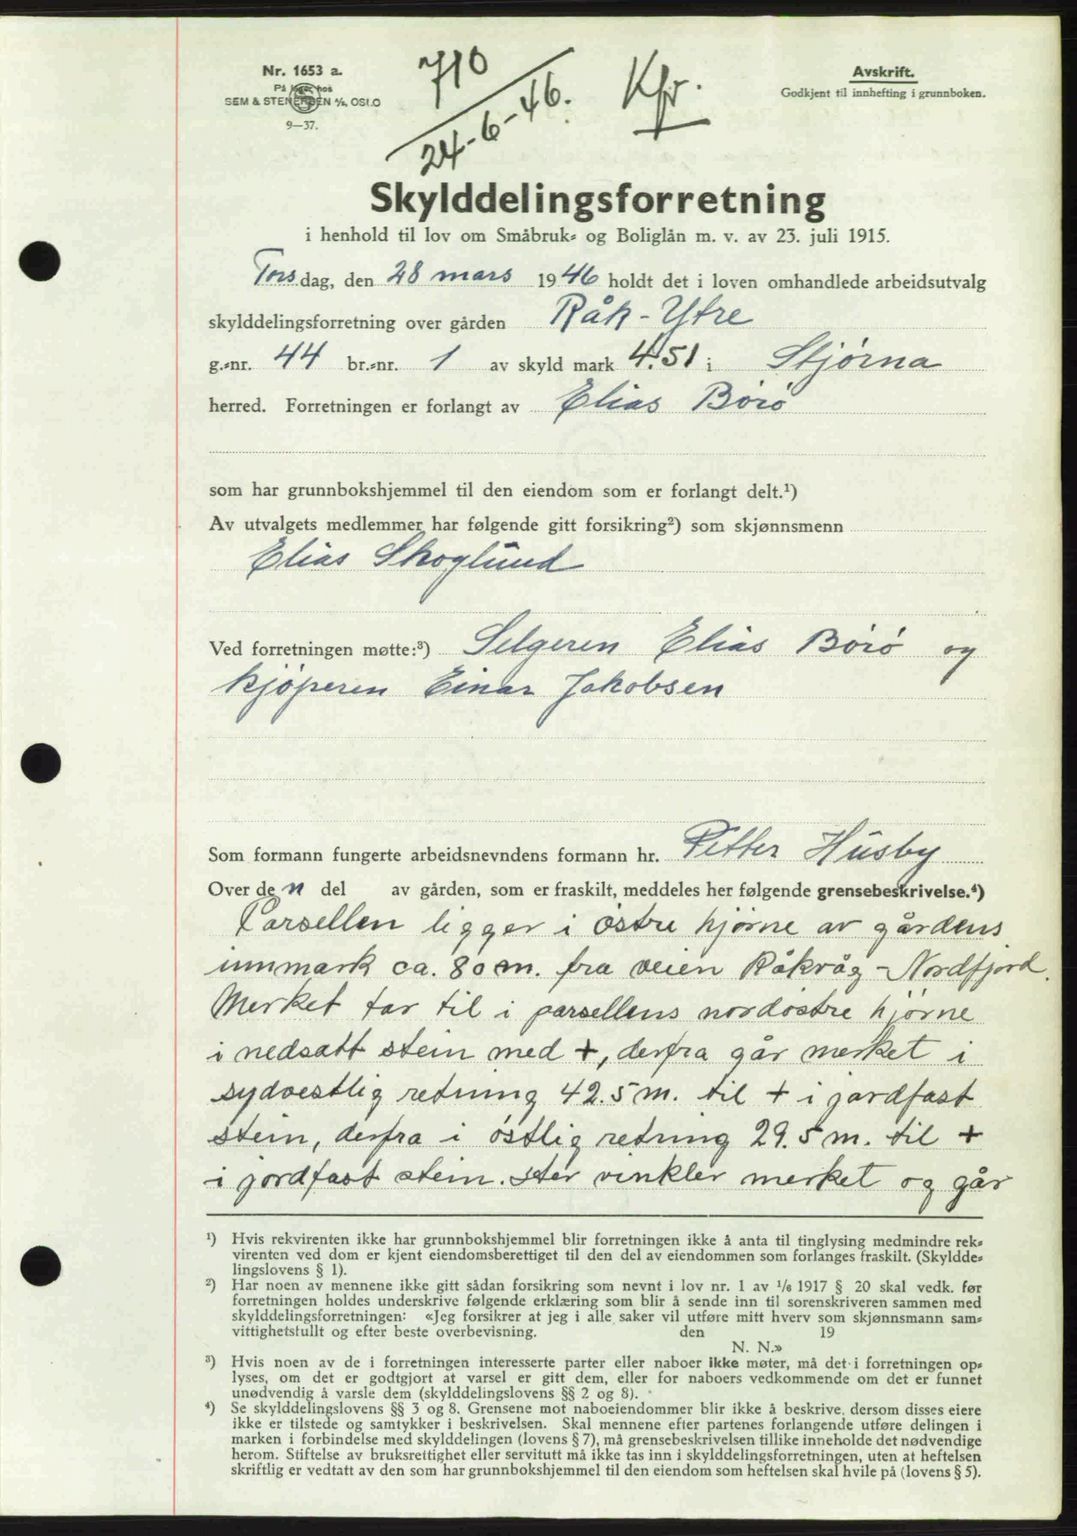 Nr. 1653 a.
På lager hos
SEM & STENERSEN A/S, OSLO
9—37.
710
24-6-46.
Kfr.
Avskrift.
Godkjent til innhefting i grunnboken.
Skylddelingsforretning
i henhold til lov om Småbruk- og Boliglån m. v. av 23. juli 1915.
Torsdag, den 28 mars 1946 holdt det i loven omhandlede arbeidsutvalg
skylddelingsforretning over gården Råk-Ytre
g.-nr. 44 br.-nr. 1 av skyld mark 4.51 i Stjørna
herred. Forretningen er forlangt av Elias Børø
som har grunnbokshjemmel til den eiendom som er forlangt delt.¹)
Av utvalgets medlemmer har følgende gitt forsikring²) som skjønnsmenn
Elias Skoglund
Ved forretningen møtte:³) Selgeren Elias Børø og
kjøperen Einar Jakobsen
Som formann fungerte arbeidsnevndens formann hr. Petter Husby
Over den del av gården, som er fraskilt, meddeles her følgende grensebeskrivelse.⁴)
Parsellen ligger i østre hjørne av gårdens
innmark ca. 80 m. fra veien Råkvåg - Nordfjord.
Merket tar til i parsellens nordøstre hjørne
i nedsatt stein med +, derfra går merket i
sydvestlig retning 42.5 m. til + i jordfast
stein, derfra i østlig retning 29.5 m. til +
i jordfast stein. Her vinkler merket og går
¹) Hvis rekvirenten ikke har grunnbokshjemmel blir forretningen ikke å anta til tinglysing medmindre rek-
virenten ved dom er kjent eiendomsberettiget til den del av eiendommen som forlanges fraskilt. (Skyldde-
lingslovens § 1).
²) Har noen av mennene ikke gitt sådan forsikring som nevnt i lov nr. 1 av 1/6 1917 § 20 skal vedk. før
forretningen holdes underskrive følgende erklæring som blir å sende inn til sorenskriveren sammen med
skylddelingsforretningen: «Jeg forsikrer at jeg i alle saker vil utføre mitt hverv som skjønnsmann sam-
vittighetsfullt og efter beste overbevisning. den 19
N. N.»
³) Hvis noen av de i forretningen interesserte parter eller naboer ikke møter, må det i forretningen op-
lyses, om det er godtgjort at varsel er gitt dem, eller for naboers vedkommende om det er funnet
unødvendig å varsle dem (skylddelingslovens §§ 2 og 8).
⁴) Se skylddelingslovens §§ 3 og 8. Grensene mot naboeiendommer blir ikke å beskrive, dersom disses eiere
ikke er tilstede og samtykker i beskrivelsen. Skal mennene efter partenes forlangende utføre delingen i
marken i forbindelse med skylddelingen (lovens § 7), må grensebeskrivelsen tillike inneholde det nødvendige
herom. Stiftelse av bruksrettighet eller servitutt må ikke tas inn i skylddelingsforretningen, uten at heftelsen
skriftlig er vedtatt av den som har grunnbokshjemmel til den eiendom som heftelsen skal hvile på (lovens § 5).